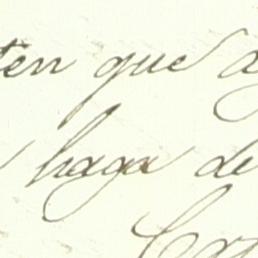 ten que
haga de